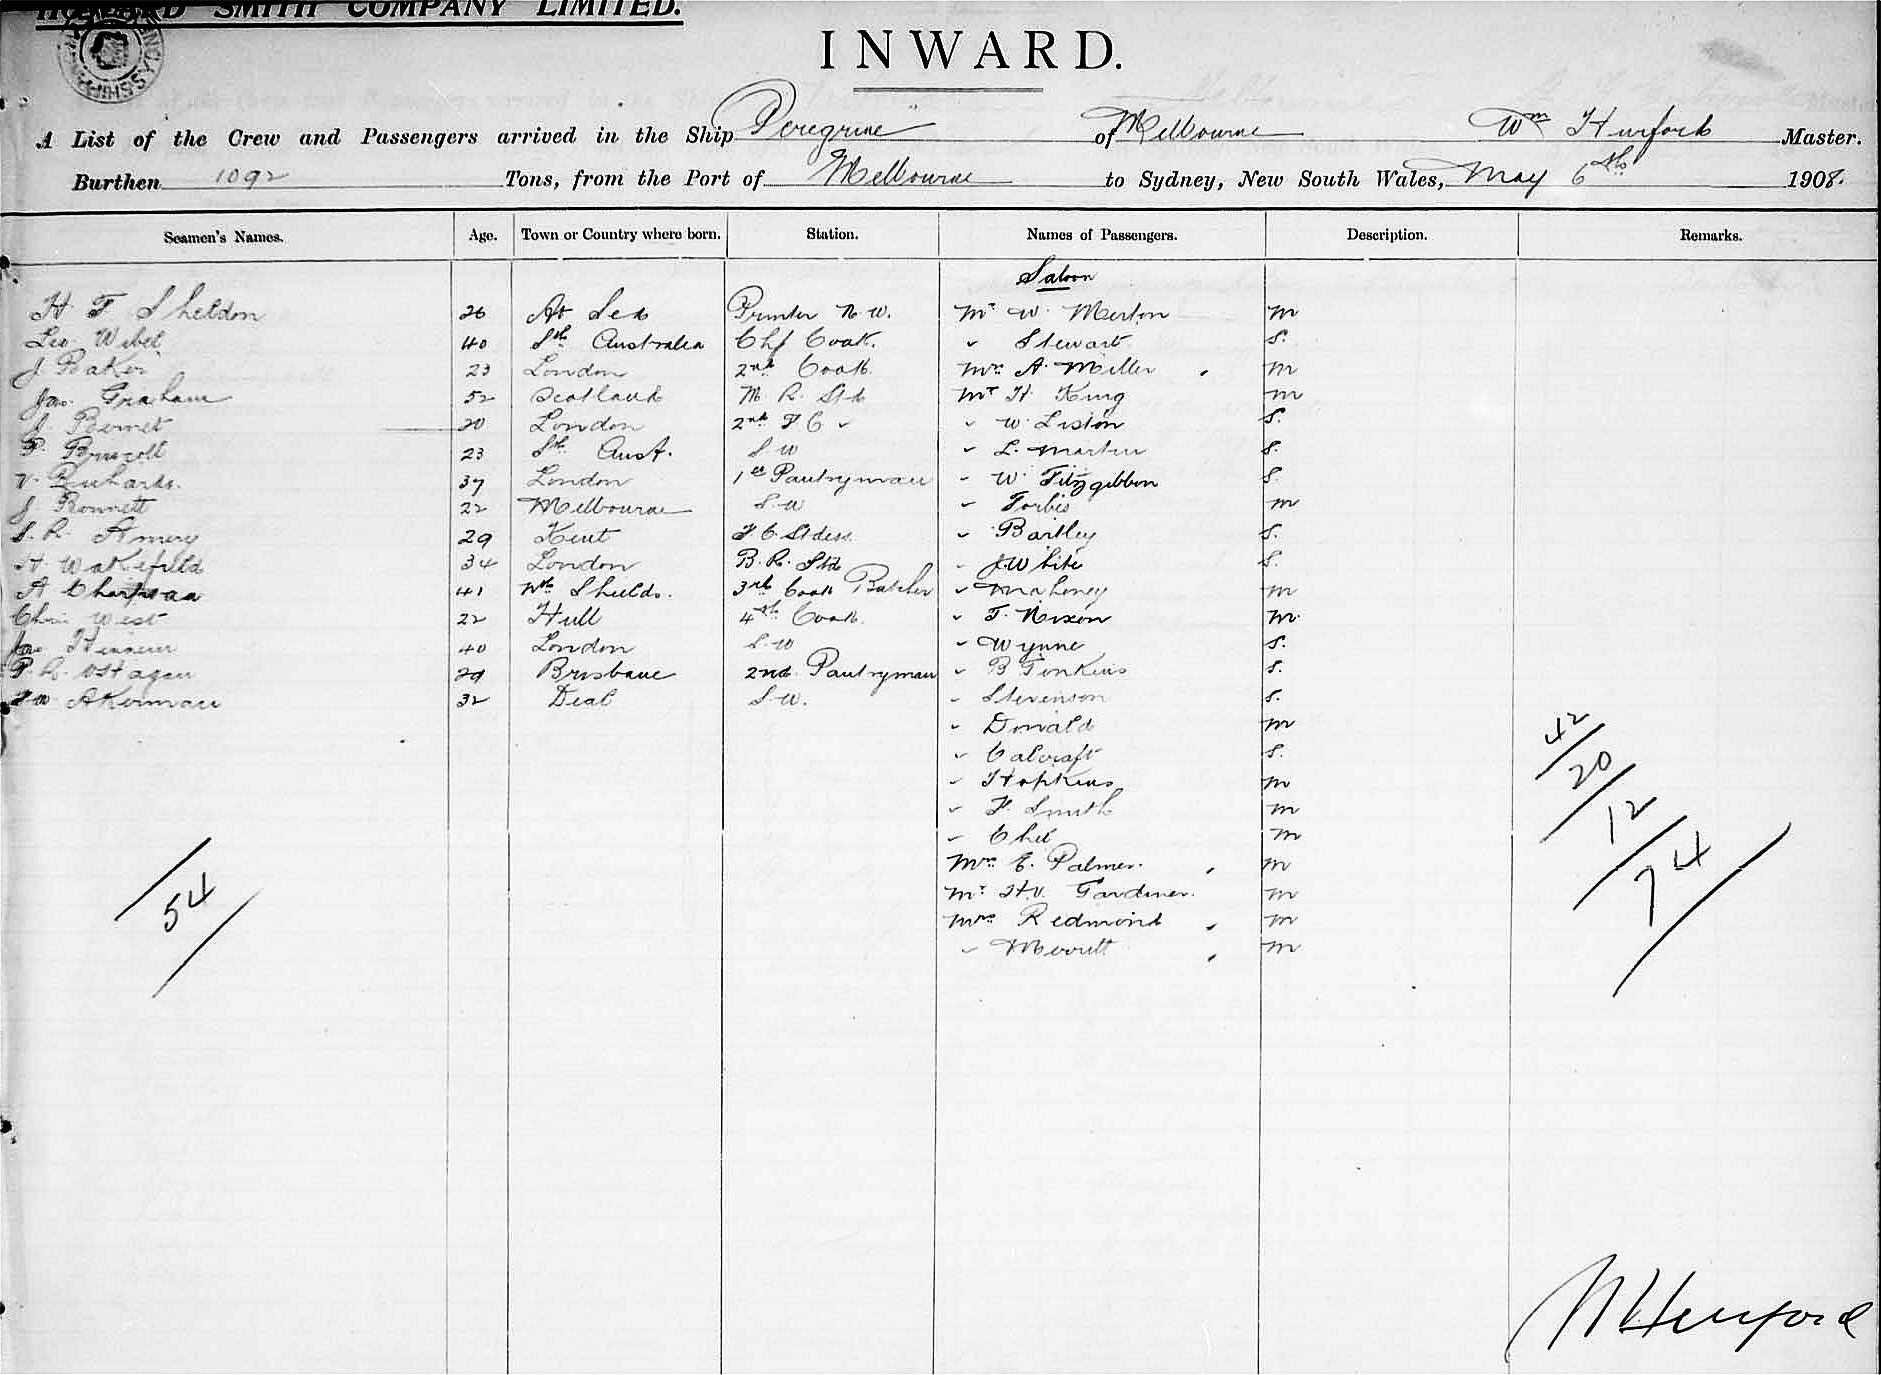 HOWARD SMITH COMPANY LIMITED.
INWARD.
A List of the Crew and Passengers arrived in the Ship "Peregrine" of Melbourne Wm Hurford Master.
Burthen 1092 Tons, from the Port of Melbourne to Sydney, New South Wales, May 6th 1908.
Seamen's Names. Age. Town or Country where born. Station. Names of Passengers. Description. Remarks.
Saloon
H. F. Sheldon 26 At Sea Printer N W. Mr W. Merton m
Leo Webel 40 Sth Australia Chf Cook. " Stewart S.
J Baker 23 London 2nd Cook. Mrs A. Miller m
Jas. Graham 52 Scotland M R. Std Mr H King m
J. Bennet 20 London 2nd F C " " W. Liston S.
P. Briscoll 23 Sth Aust. S W " L. Martin S.
V. Richards. 37 London 1st Pantryman " W. Fitzgibbon S
J Bonnett 22 Melbourne S W " Forbes m
S. R. Amery 29 Kent F. C. Stdess " Bartley S.
H. Wakefield 34 London B. R. Std " J. White S.
A Chapman 41 Nth Shields. 3rd Cook Butcher " Mahoney m
Chris West 22 Hull 4th Cook. " T. Nixon m.
Jas 40 London S. W " Wynne S.
P. R. O'Hagan 29 Brisbane 2nd Pantryman " B Tonkins S.
Akerman 32 Deal S. W. " Stevenson S.
" Donald m
" Calcraft S.
" Hopkins m
" F. Smith m
" m
Mrs E. Palmer. m
Mr H. V. Gardiner. m
Mrs Redmond m
" Merritt m
42
20
12
74
54
W Hurford